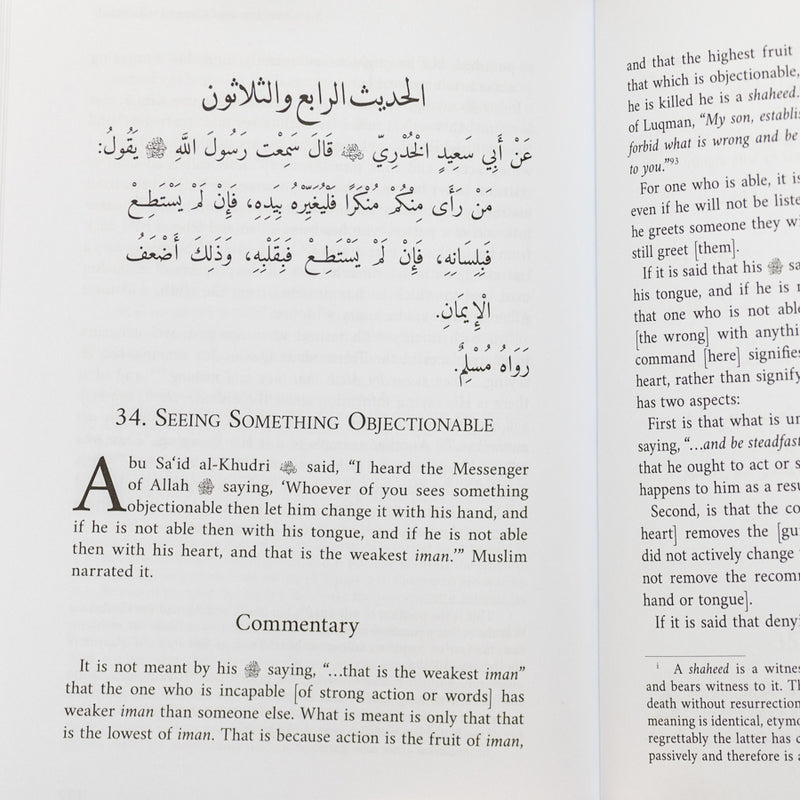 الحديث الرابع والثلاثون
عَنْ أَبِي سَعِيدٍ الْخُدْرِيِّ قَالَ سَمِعْت رَسُولَ اللَّهِ ﷺ يَقُولُ:
مَنْ رَأَى مِنْكُمْ مُنْكَرًا فَلْيُغَيِّرْهُ بِيَدِهِ، فَإِنْ لَمْ يَسْتَطِعْ
فَبِلِسَانِهِ، فَإِنْ لَمْ يَسْتَطِعْ فَبِقَلْبِهِ، وَذَلِكَ أَضْعَفُ
الْإِيمَانِ.
رَوَاهُ مُسْلِمٌ.
34. SEEING SOMETHING OBJECTIONABLE
Abu Sa‘id al-Khudri said, “I heard the Messenger
of Allah ﷺ saying, ‘Whoever of you sees something
objectionable then let him change it with his hand, and
if he is not able then with his tongue, and if he is not able
then with his heart, and that is the weakest iman.’” Muslim
narrated it.
Commentary
It is not meant by his ﷺ saying, “…that is the weakest iman”
that the one who is incapable [of strong action or words] has
weaker iman than someone else. What is meant is only that that
is the lowest of iman. That is because action is the fruit of iman,
and that the highest fruit
that which is objectionable,
he is killed he is a shaheed.
of Luqman, “My son, establis
forbid what is wrong and be
to you.”93
For one who is able, it is
even if he will not be liste
he greets someone they wi
still greet [them].
If it is said that his ﷺ sa
his tongue, and if he is n
that one who is not able
[the wrong] with anythi
command [here] signifies
heart, rather than signify
has two aspects:
First is that what is un
saying, “…and be steadfast
that he ought to act or s
happens to him as a resu
Second, is that the co
heart] removes the [gui
did not actively change
not remove the recomm
hand or tongue].
If it is said that deny
i A shaheed is a witnes
and bears witness to it. Th
death without resurrection
meaning is identical, etymo
regrettably the latter has c
passively and therefore is a